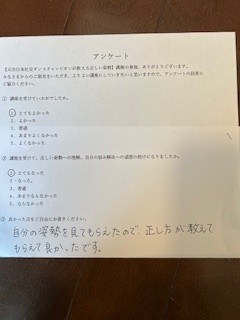 アンケート
【元全日本社交ダンスチャンピオンが教える正しい姿勢】講座の参加、ありがとうございます。
みなさまからのご意見をいただき、よりよい講座にしていきたいと思いますので、アンケートの回答に
ご協力ください。
① 講座を受けていかがでしたか。
1、とてもよかった
2、よかった
3、普通
4、あまりよくなかった
5、よくなかった
② 講座を受けて、正しい姿勢への理解、自分の悩み解決への道筋の助けになりましたか。
1、とてもなった
2、なった
3、普通
4、あまりならなかった
5、ならなかった
③ 良かった点をご自由にお書きください。
自分の姿勢を見てもらえたので、正し方が教えて
もらえて良かったです。